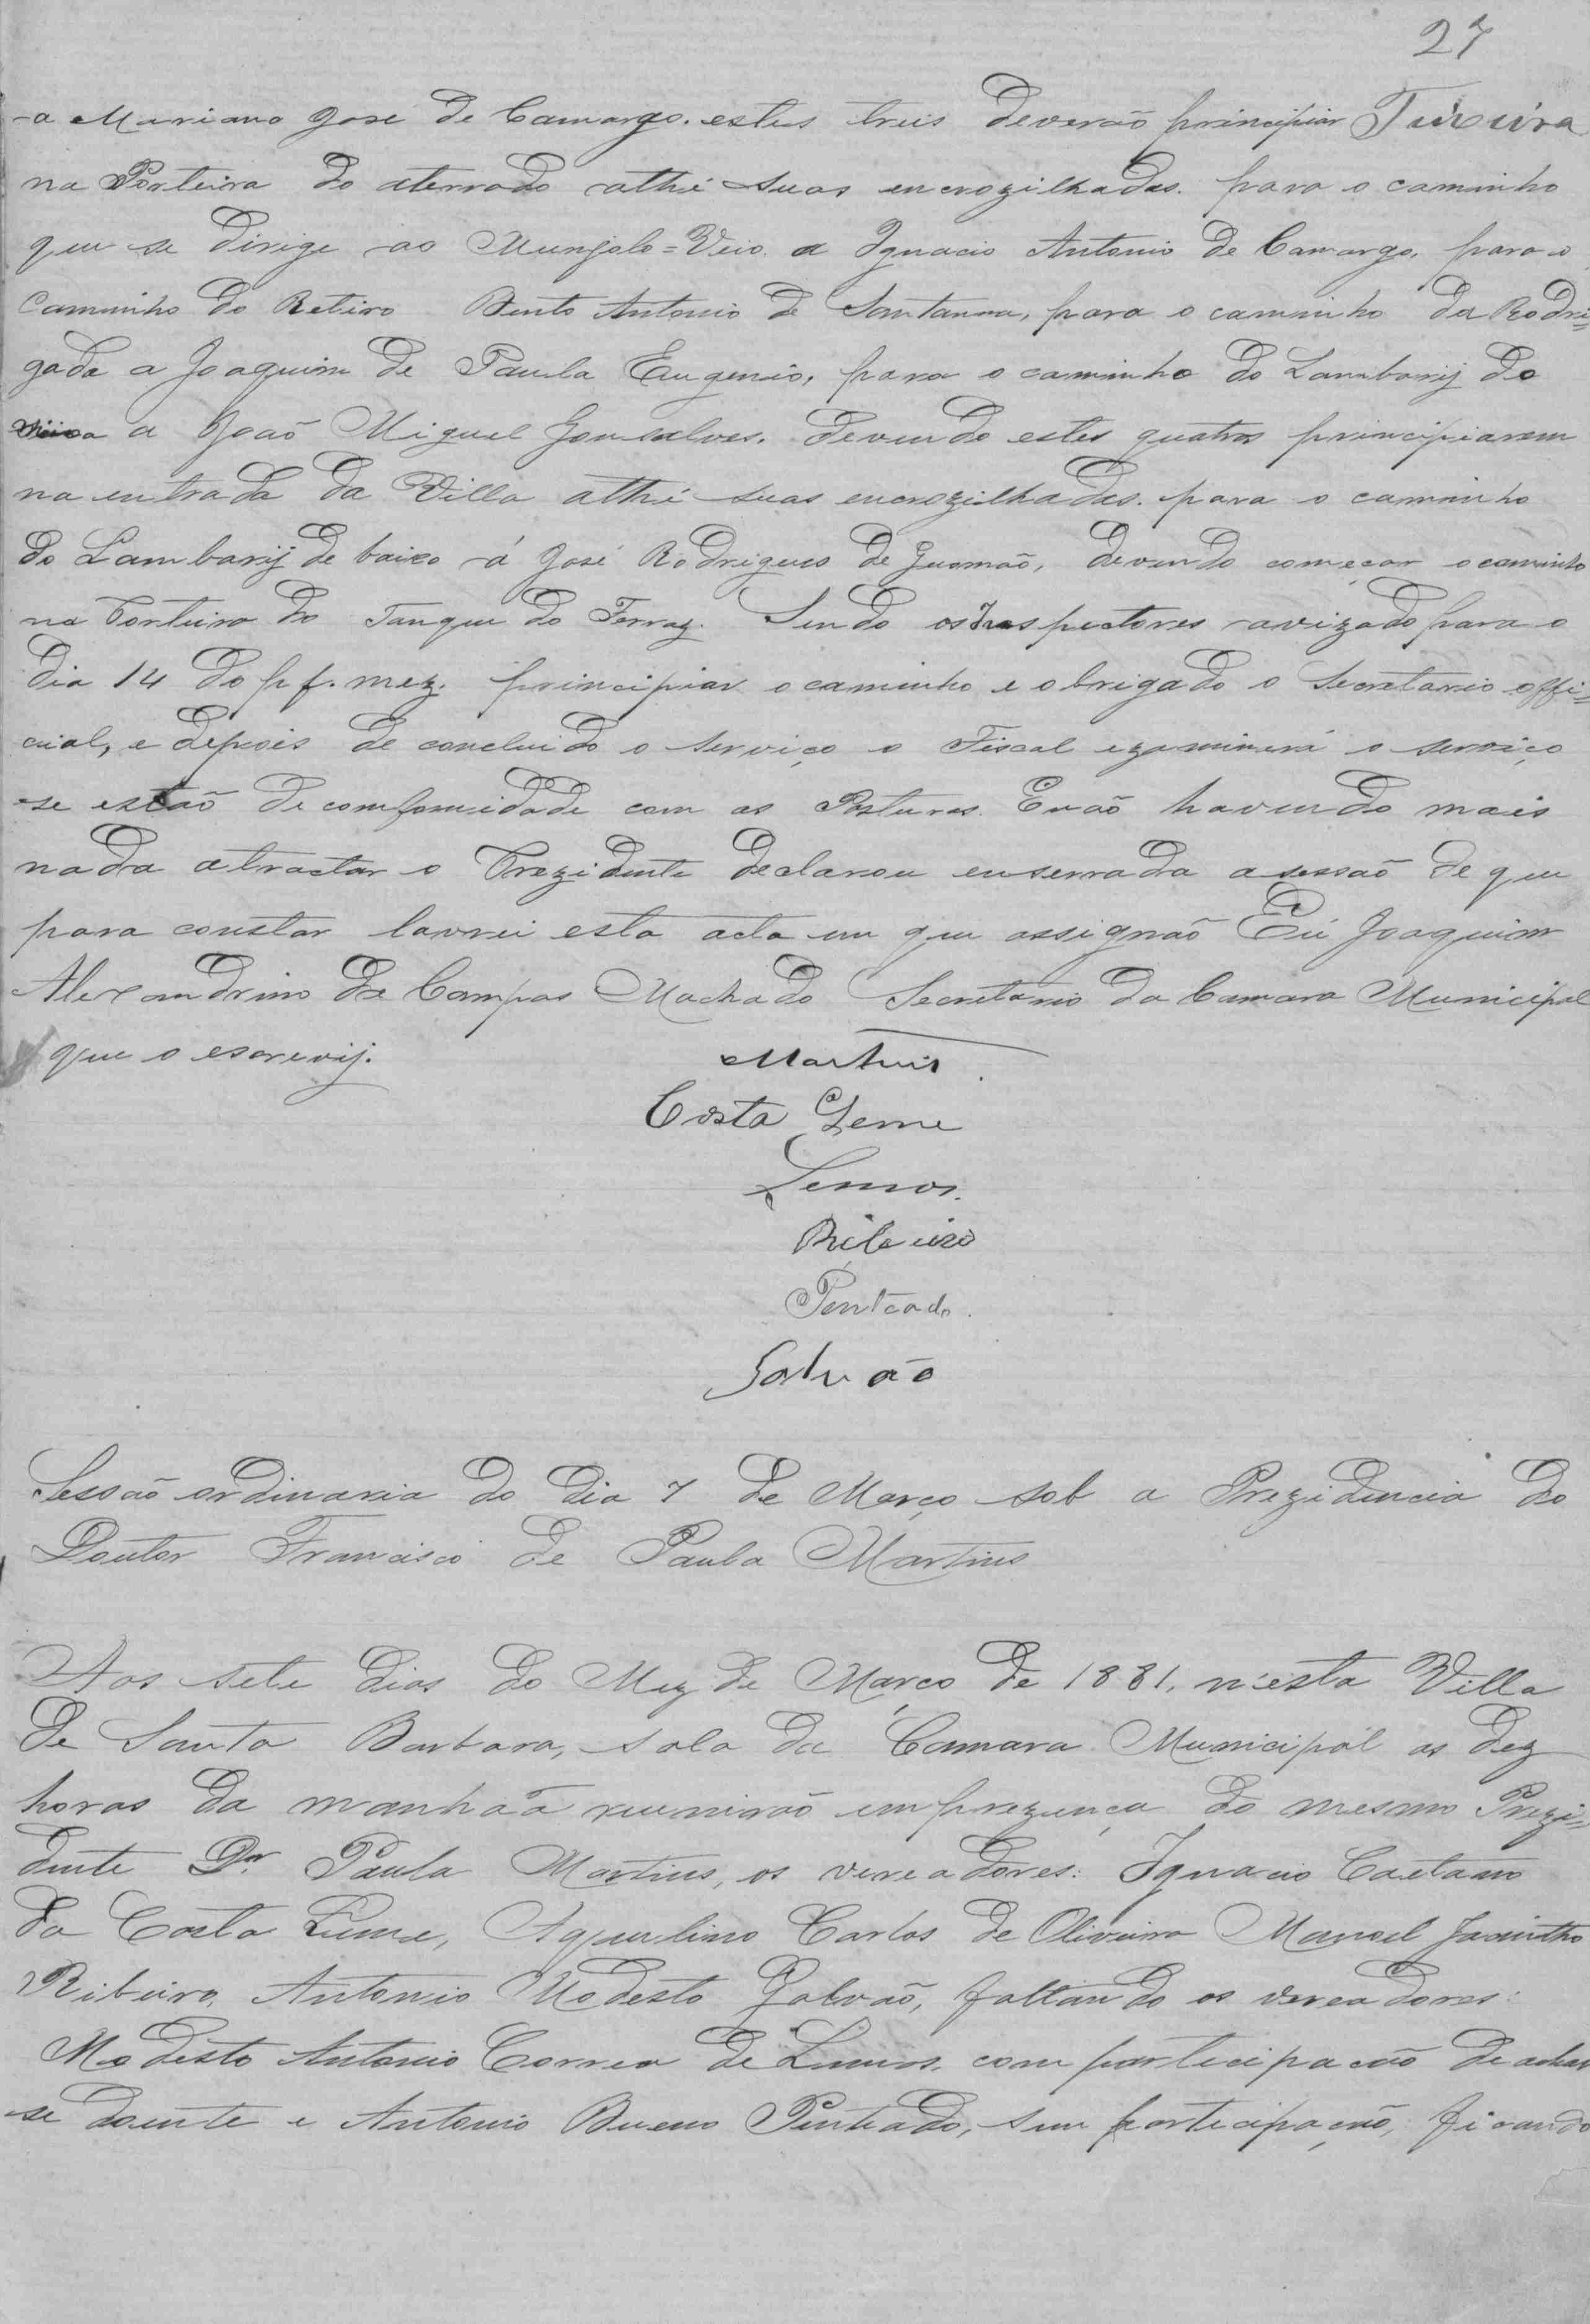 27
a Mariano José de Camargo. estes treis deverão principiar Teixeira
na Porteira do aterrado athé suas encrozilhadas. para o caminho
que se dirige ao Munjolo=Veio a Ignacio Antonio de Camargo, para o
Caminho do Retiro Bento Antonio de Santanna, para o caminho da Rodri=
gada a Joaquim de Paula Eugenio, para o caminho do Lambarij do
a João Miguel Gonsalves. devendo estes quatros principiarem
na entrada da Villa athé suas encrozilhadas. para o caminho
do Lambarij de baixo á José Rodrigues de Gusmão, devendo começar o caminho
na Porteira do Tanque do Ferraz. Sendo os Inspectores avizado para o
dia 14 do p f. mez. principiar o caminho e obrigado o Secretario offi=
cial, e depois de concluido o serviço o Fiscal ezaminará o serviço
se estão de comfomidade com as Posturas. E não havendo mais
nada atractar o Prezidente declarou enserrada a sessão de que
para constar lavrei esta acta em que assignão Eu Joaquim
Alexandrino de Campos Machado Secretario da Camara Municipal
que o escrevij.
Martins
Costa Leme
Lemos.
Ribeiro
Penteado.
Galvão
Sessão ordinaria do dia 7 de Março sob a Prezidencia do
Doutor Francisco de Paula Martins
Aos sete dias do Mez de Março de 1881, n'esta Villa
de Santa Barbara, sala da Camara Municipal as dez
horas da manhãa reunirão em prezença do mesmo Prezi=
dente Dr Paula Martins, os vereadores: Ignacio Caetano
da Costa Leme, Aquelino Carlos de Oliveira Manoel Jacintho
Ribeiro, Antonio Modesto Galvão, faltando os vereadores:
Modesto Antonio Correa de Lemos, com participação de achar
se doente e Antonio Bueno Penteado, sem participação, ficando